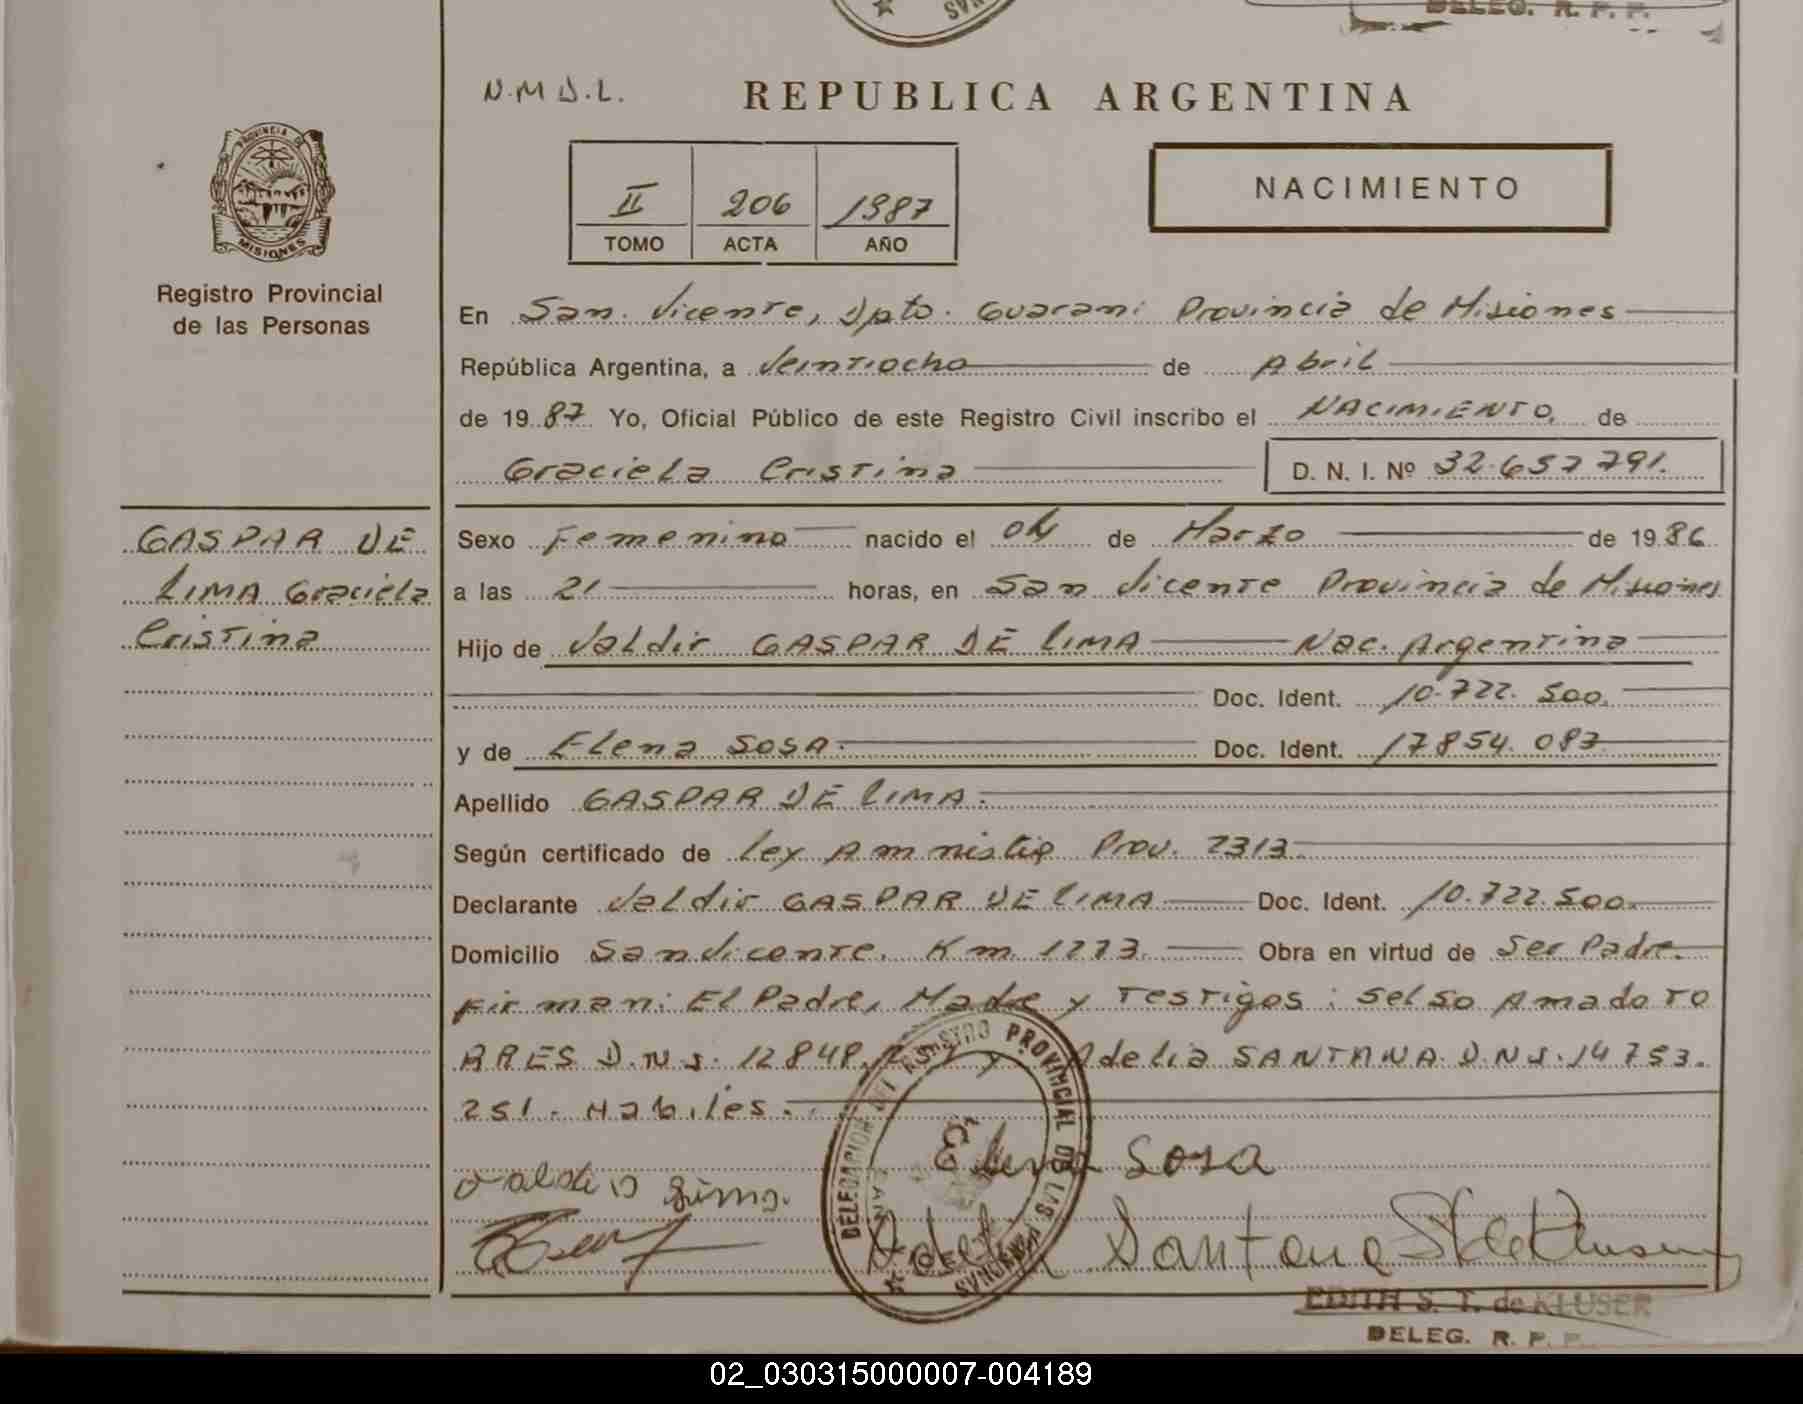 DELEG. R. P. P.
N.M.D.L.
REPUBLICA ARGENTINA
PROVINCIA DE
MISIONES
Registro Provincial
de las Personas
II 206 1987
TOMO ACTA AÑO
NACIMIENTO
En San Vicente, Dpto. Guarani Provincia de Misiones
República Argentina, a Veintiocho de Abril
de 1987 Yo, Oficial Público de este Registro Civil inscribo el NACIMIENTO, de
Graciela Cristina D. N. I. Nº 32.657 791.
GASPAR DE
LIMA Graciela
Cristina
Sexo Femenino nacido el 04 de Marzo de 1986
a las 21 horas, en San Vicente Provincia de Misiones
Hijo de Valdir GASPAR DE LIMA Nac. Argentina
Doc. Ident. 10.722.500.
y de Elena SOSA. Doc. Ident. 17854.083
Apellido GASPAR DE LIMA.
Según certificado de Ley Amnistia Prov. 2313.
Declarante Valdir GASPAR DE LIMA Doc. Ident. 10.722.500.
Domicilio San Vicente, Km. 1273. Obra en virtud de Ser Padre.
Firman: El Padre, Madre y Testigos: Selso Amado TO
RRES D.N.I. 12848. y Adelia SANTANA D.N.I. 14753.
251. Habiles.
DELEGACION DEL REGISTRO PROVINCIAL DE LAS PERSONAS
Elena Sosa
Santana
EDITH S. T. de KLUSER
DELEG. R. P. P.
02_030315000007-004189